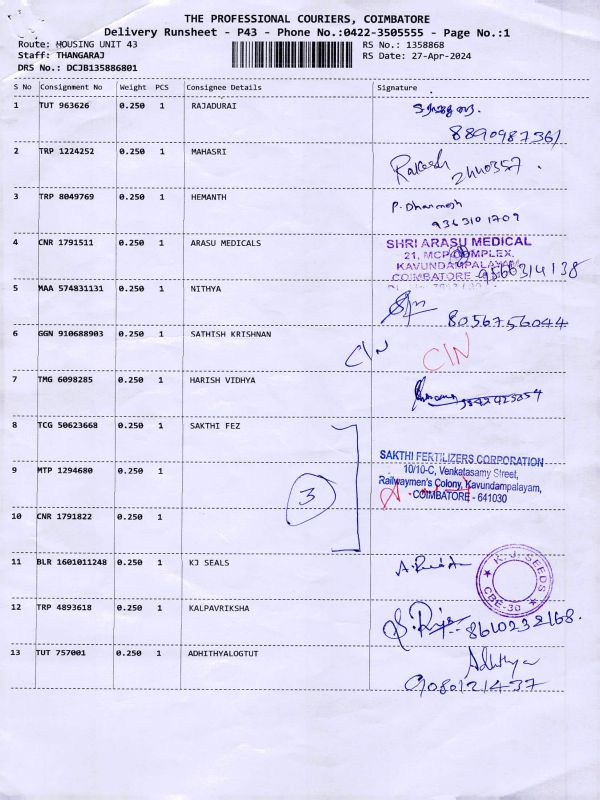 THE PROFESSIONAL COURIERS, COIMBATORE
Delivery Runsheet - P43 - Phone No.:0422-3505555 - Page No.:1
Route: HOUSING UNIT 43 RS No.: 1358868
Staff: THANGARAJ RS Date: 27-Apr-2024
DRS No.: DCJB135886801
S No Consignment No Weight PCS Consignee Details Signature
1 TUT 963626 0.250 1 RAJADURAI
8890987361
2 TRP 1224252 0.250 1 MAHASRI Rakesh
2440357.
3 TRP 8049769 0.250 1 HEMANTH P. Dharmesh
9363101709
4 CNR 1791511 0.250 1 ARASU MEDICALS SHRI ARASU MEDICAL
21, MCP COMPLEX.
KAVUNDAMPALAYAM
COIMBATORE 9566314138
5 MAA 574831131 0.250 1 NITHYA
8056756044
6 GGN 910688903 0.250 1 SATHISH KRISHNAN
C/N C/N
7 TMG 6098285 0.250 1 HARISH VIDHYA
8 TCG 50623668 0.250 1 SAKTHI FEZ
SAKTHI FERTILIZERS CORPORATION
9 MTP 1294680 0.250 1 10/10-C, Venkatasamy Street,
Railwaymen's Colony, Kavundampalayam,
3 COIMBATORE - 641030
10 CNR 1791822 0.250 1
11 BLR 1601011248 0.250 1 KJ SEALS
K.J. SEEDS
CBE-30
12 TRP 4893618 0.250 1 KALPAVRIKSHA
8610232168.
13 TUT 757001 0.250 1 ADHITHYALOGTUT Adhithya
9080121437